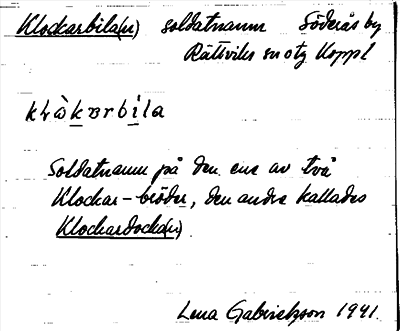 Klockarbila(n) soldatnamn Söderås by
Rättviks sn otg Koppl
Soldatnamn på den ene av två
Klockar-bröder, den andre kallades
Klockardocka(n)
Lena Gabrielsson 1941.